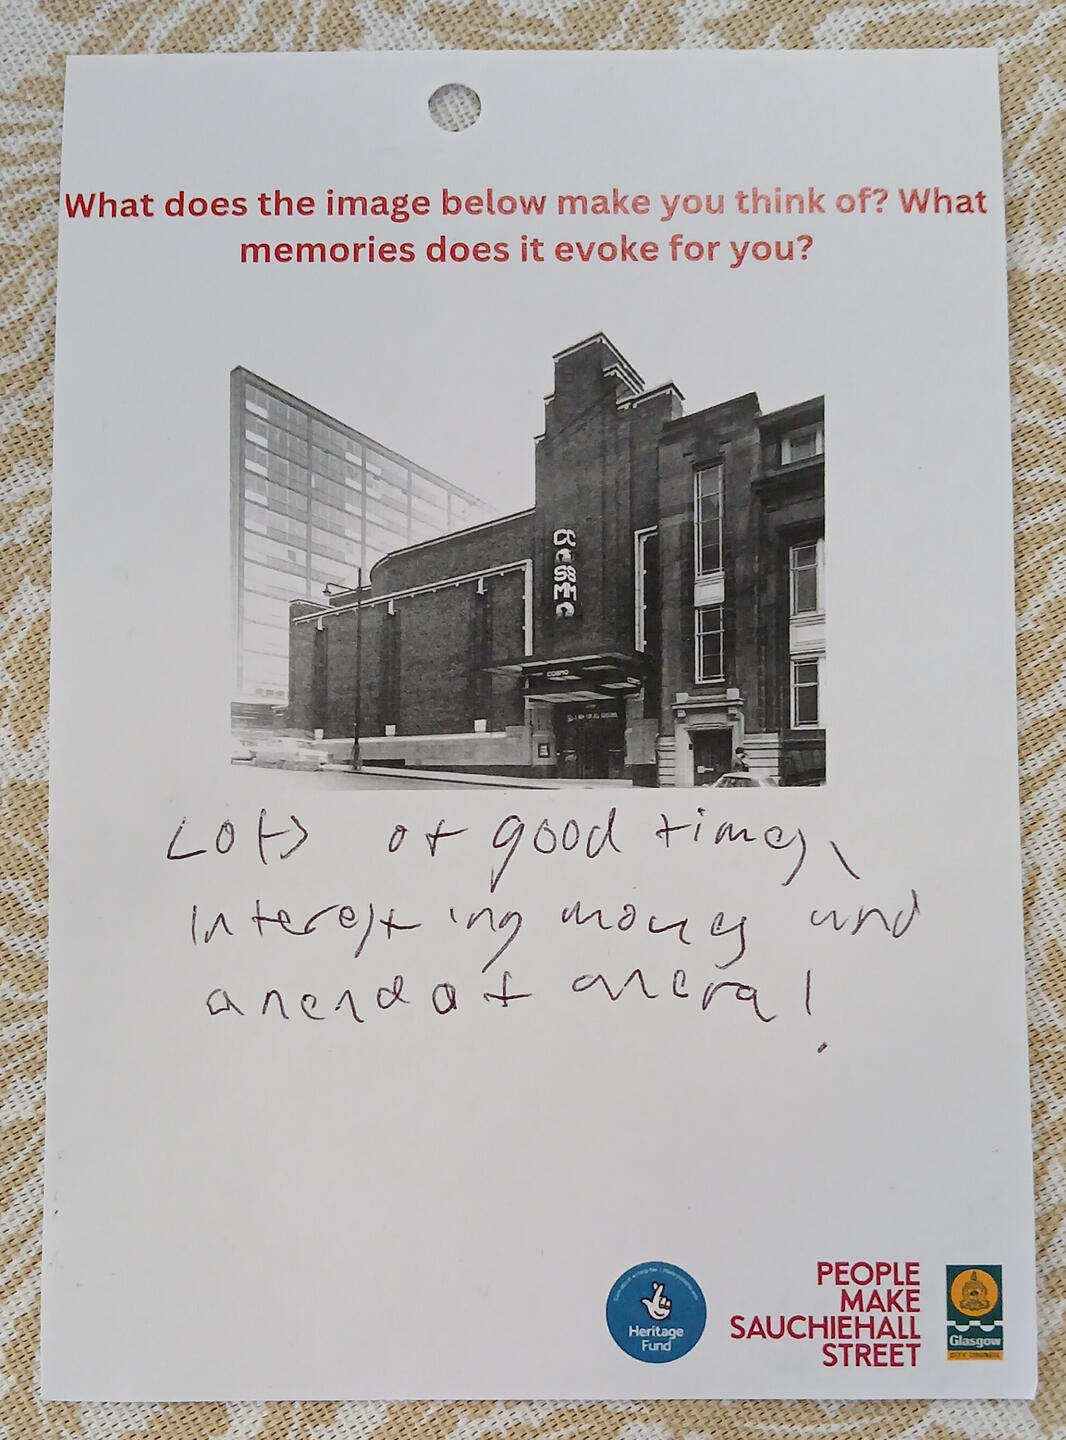 What does the image below make you think of? What
memories does it evoke for you?
COSMO
COSMO
Lots of good times,
interesting movies and
Heritage
Fund
PEOPLE
MAKE
SAUCHIEHALL
STREET
Glasgow
CITY COUNCIL